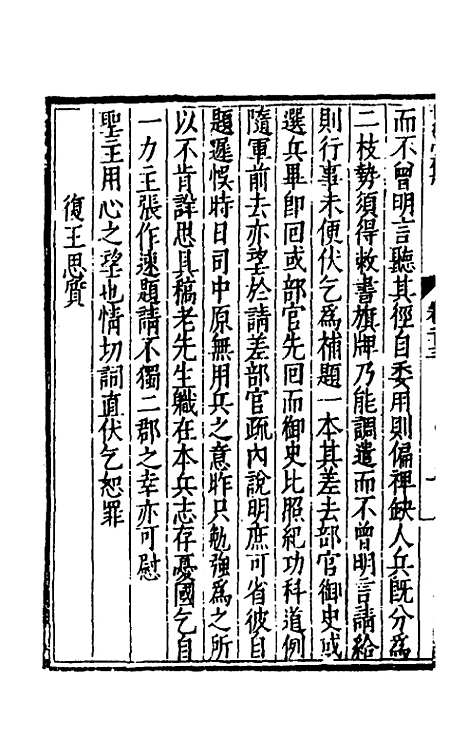 而不曾明言聽其徑自委用則偏裨缺人兵既分爲
二枝勢須得敕書旗牌乃能調遣而不曾明言請給
則行事未便伏乞爲補題一本其差去部官御史或
選兵畢卽回或部官先回而御史比照紀功科道例
隨軍前去亦望於請差部官疏內說明庶可省彼自
題遲悞時日司中原無用兵之意昨只勉強爲之所
以不肯詳思具稿老先生職在本兵志存憂國乞自
一力主張作速題請不獨二郡之幸亦可慰
聖主用心之望也情切詞直伏乞恕罪
復王思質